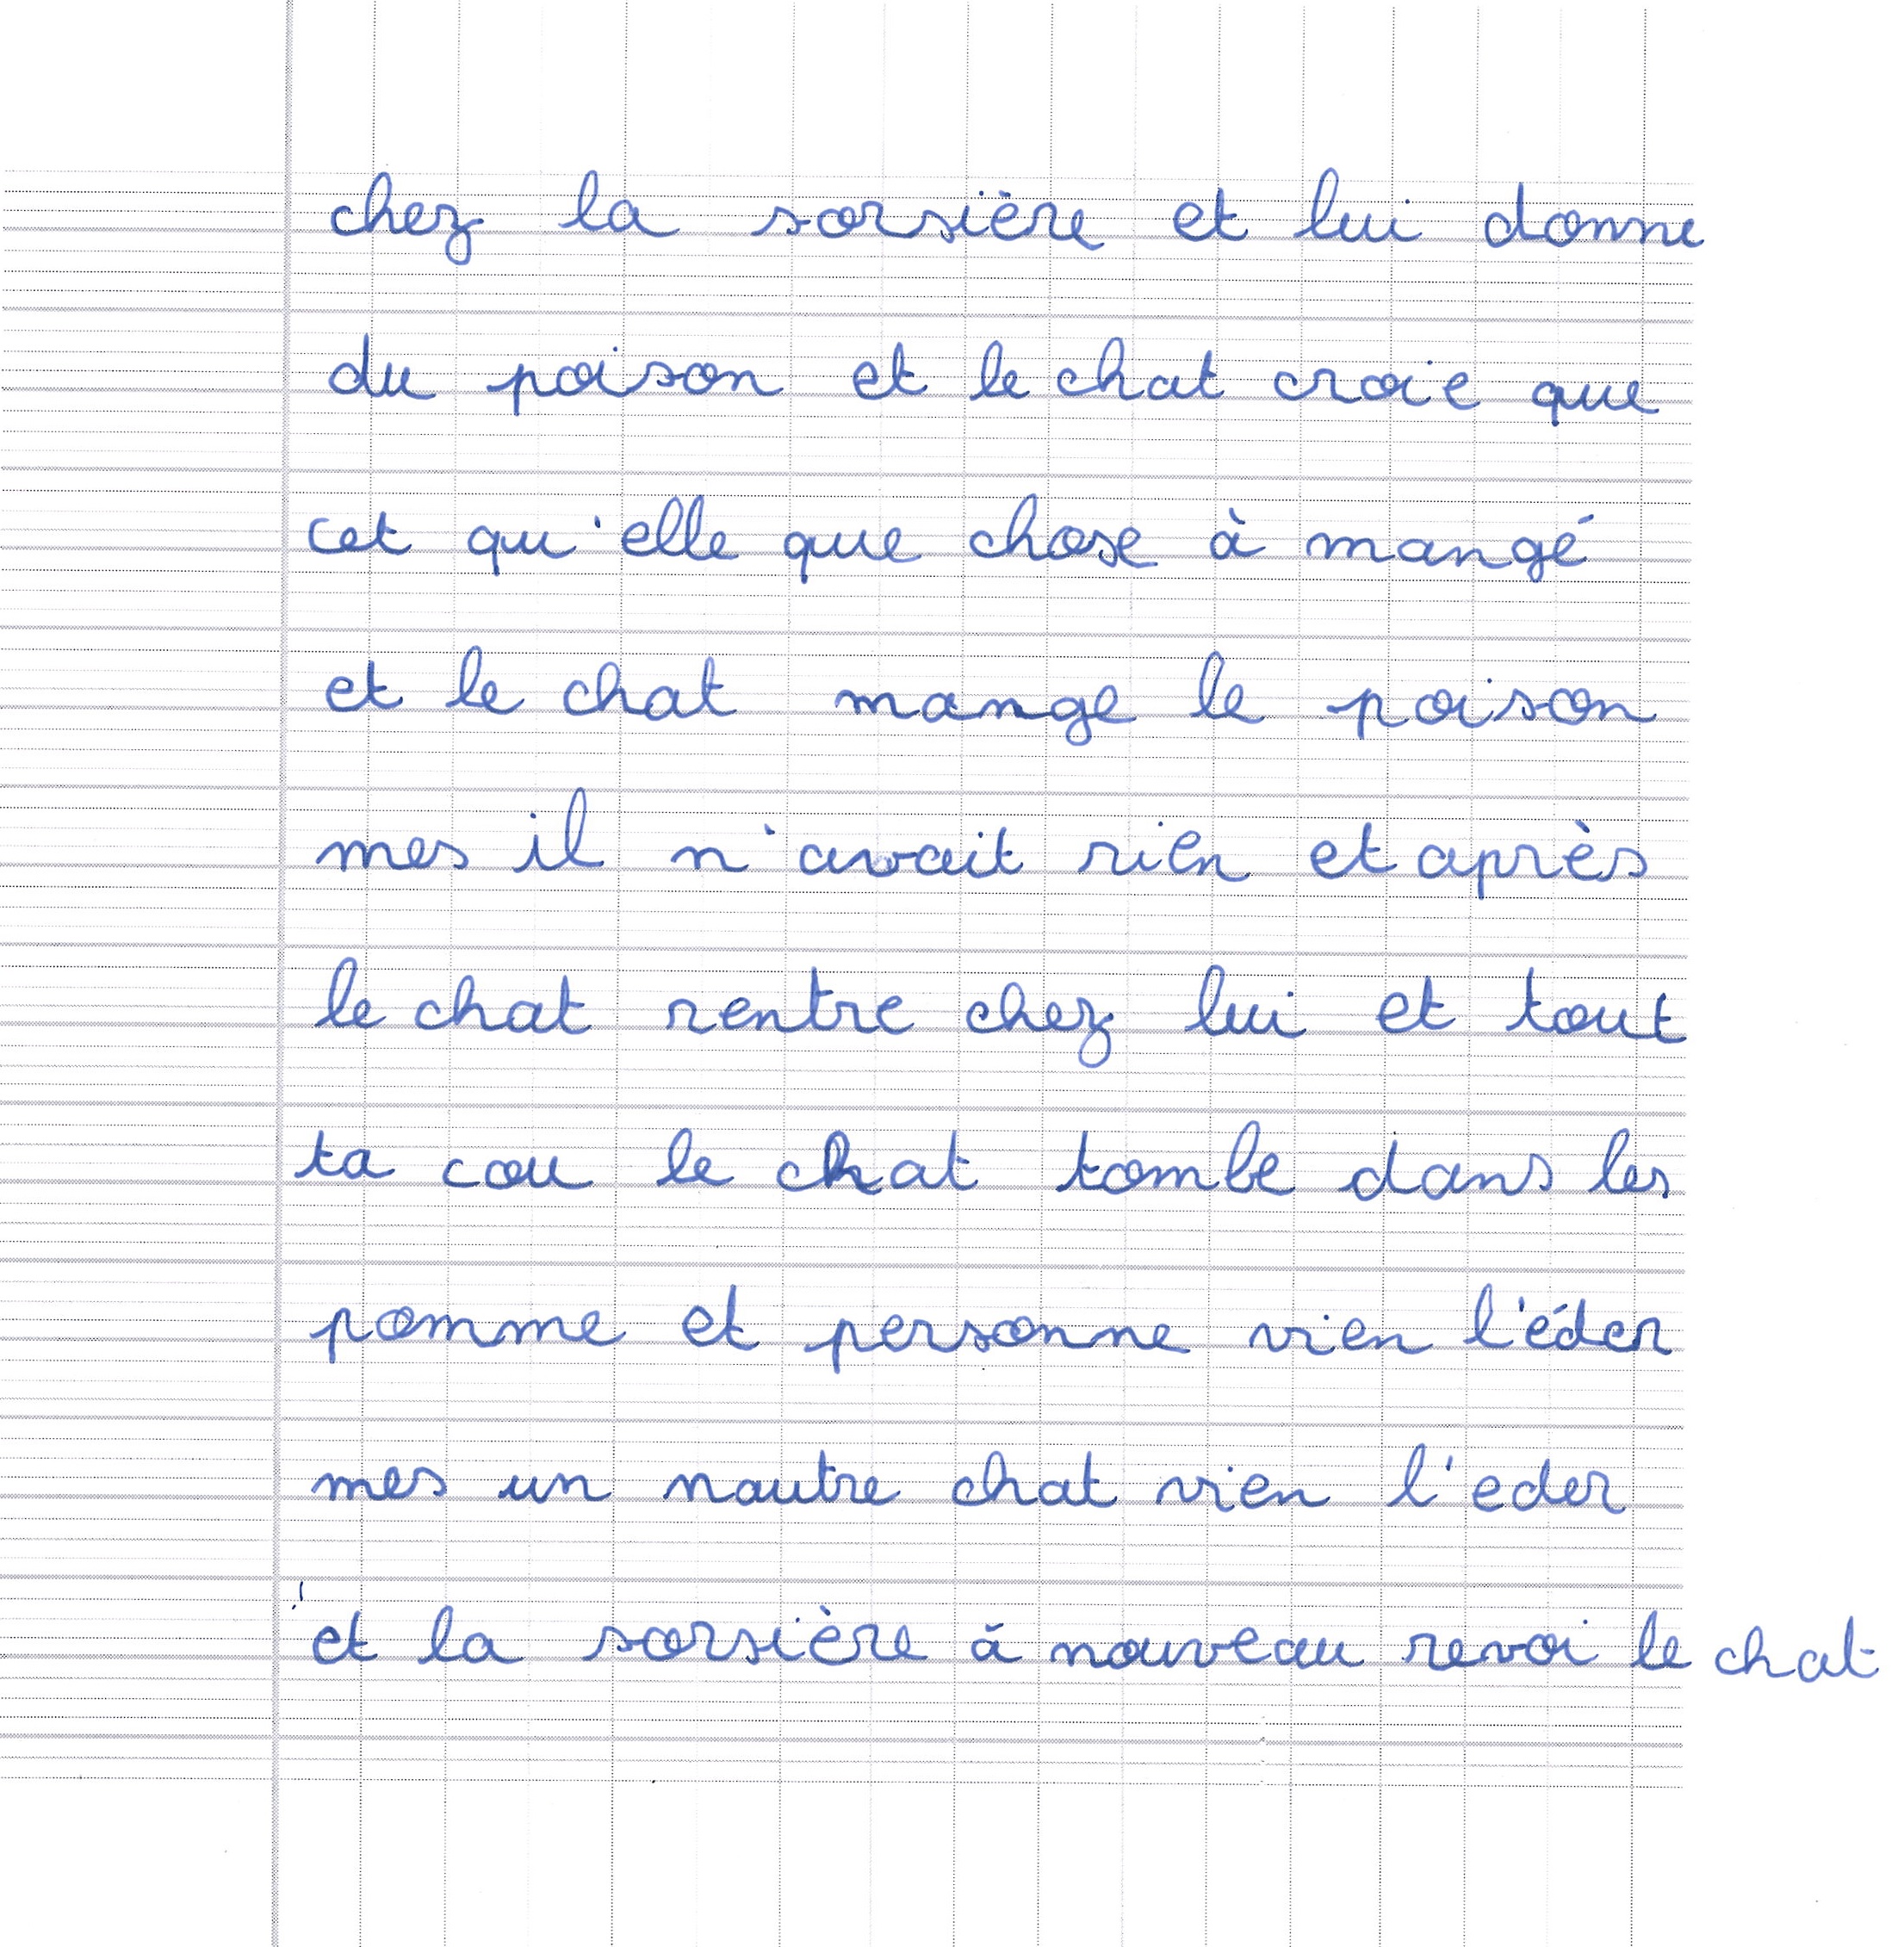 chez la sorsière et lui donne
du poison et le chat croie que
cet qu'elle que chose à mangé
et le chat mange le poison
mes il n'avait rien et après
le chat rentre chez lui et tout
ta cou le chat tombe dans les
pomme et personne vien l'éder
mes un nautre chat vien l'eder
et la sorsière à nouveau revoi le chat